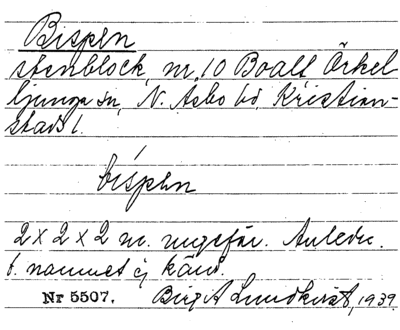 Bispen
stenblock, nr. 10 Boalt Örkel
ljunga sn, N. Åsbo hd, Kristian-
stads l.
bispen
2 x 2 x 2 m. ungefär. Anledn.
t. namnet ej känd.
Nr 5507. Birgit Lundkvist, 1939.